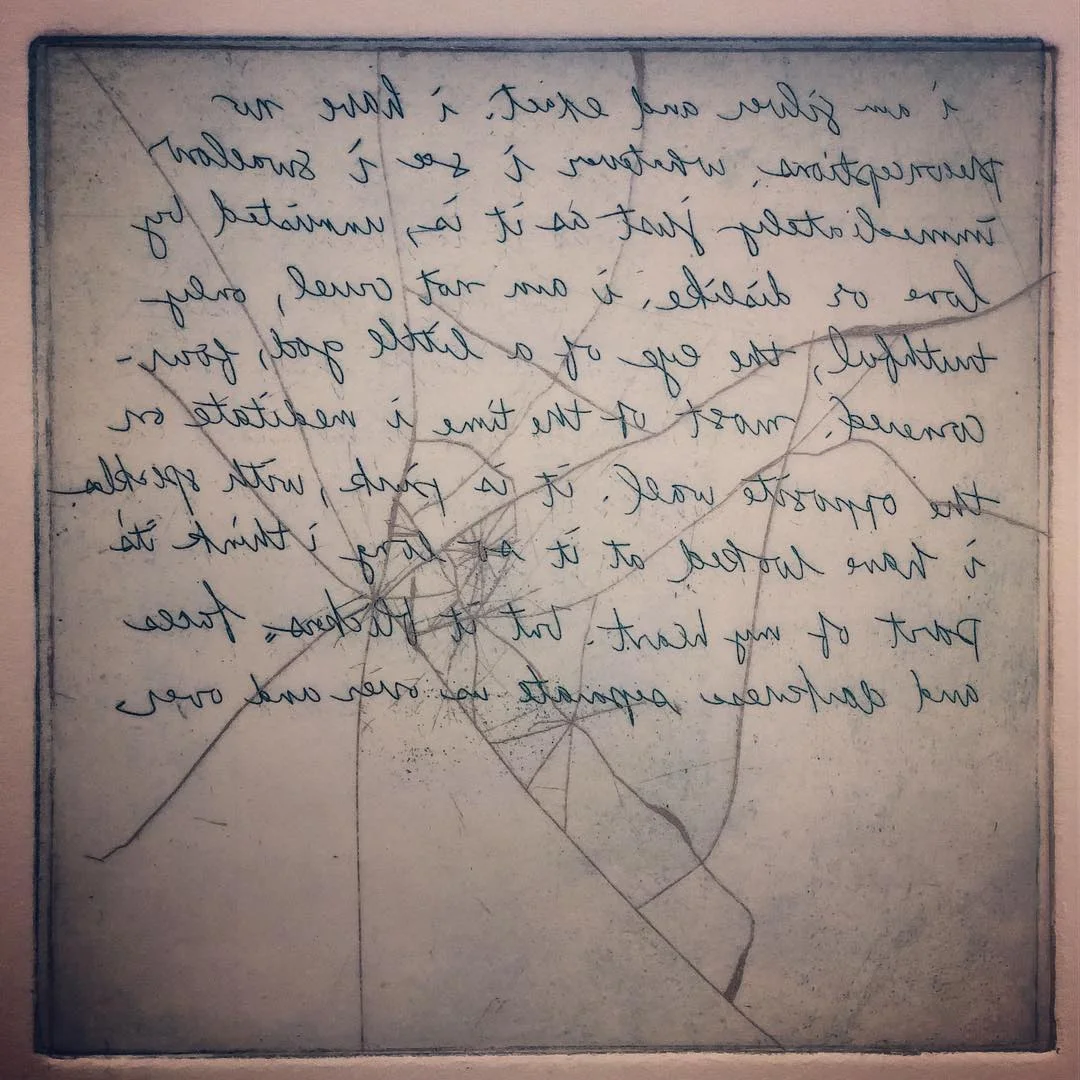 i am silver and exact. i have no
preconceptions. whatever i see i swallow
immediately just as it is, unmisted by
love or dislike. i am not cruel, only
truthful, the eye of a little god, four-
cornered. most of the time i meditate on
the opposite wall. it is pink, with speckles
i have looked at it so long i think it's
part of my heart. but it flickers. faces
and darkness separate us over and over.